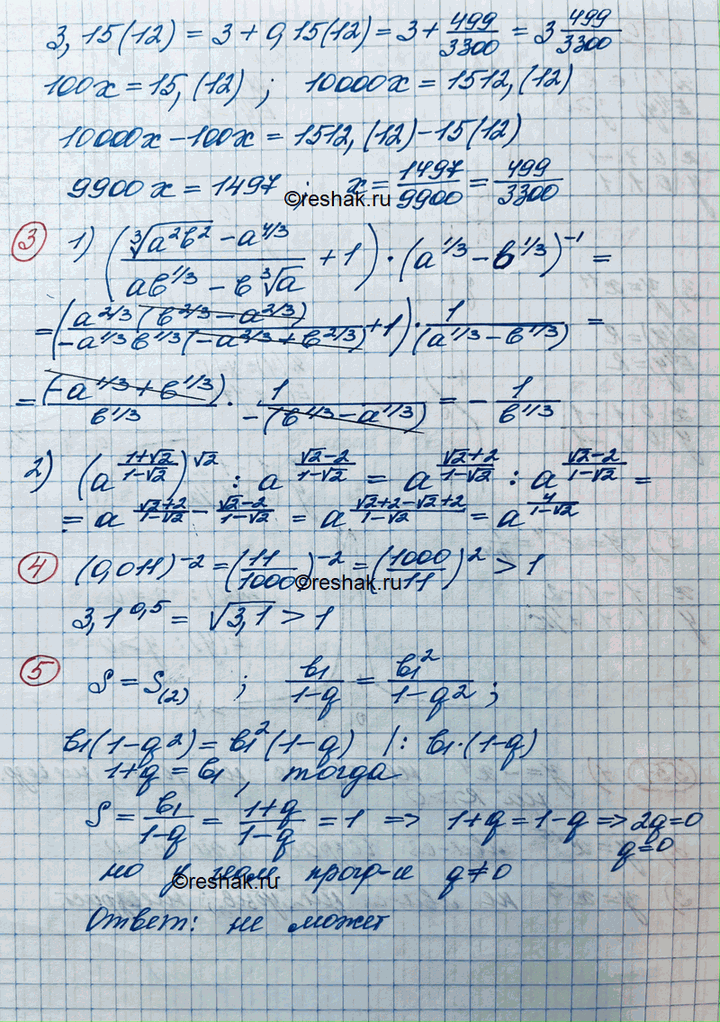 3,15(12) = 3 + 0,15(12) = 3 + 499/3300 = 3 499/3300
100x = 15,(12) ; 10000x = 1512,(12)
10000x - 100x = 1512,(12) - 15(12)
9900x = 1497 ; x = 1497/9900 = 499/3300
©reshak.ru
③ 1) ((∛(a²b²) - a^(4/3))/(ab^(1/3) - b∛a) + 1) · (a^(1/3) - b^(1/3))^(-1) =
= ((a^(2/3)(b^(2/3) - a^(2/3)))/(-a^(1/3)b^(1/3)(-a^(2/3) + b^(2/3))) + 1) · 1/(a^(1/3) - b^(1/3)) =
= (-a^(1/3) + b^(1/3))/b^(1/3) · 1/(-(b^(1/3) - a^(1/3))) = - 1/b^(1/3)
2) (a^((1+√2)/(1-√2)))^√2 : a^((√2-2)/(1-√2)) = a^((√2+2)/(1-√2)) : a^((√2-2)/(1-√2)) =
= a^((√2+2)/(1-√2) - (√2-2)/(1-√2)) = a^((√2+2-√2+2)/(1-√2)) = a^(4/(1-√2))
④ (0,011)^(-2) = (11/1000)^(-2) = (1000/11)² > 1
©reshak.ru
3,1^(0,5) = √3,1 > 1
⑤ S = S(2) ; b₁/(1-q) = b₁²/(1-q²) ;
b₁(1-q²) = b₁²(1-q) |: b₁·(1-q)
1+q = b₁, тогда
S = b₁/(1-q) = (1+q)/(1-q) = 1 ⇒ 1+q = 1-q ⇒ 2q=0
q=0
но у геом прог-и q≠0
©reshak.ru
Ответ: не может